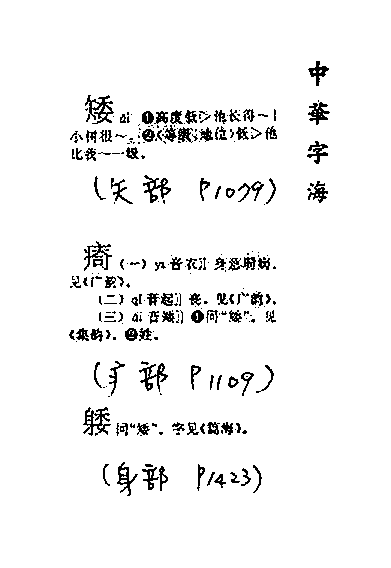 中華字海
矮 ǎi ❶高度低▷他长得～|
小树很～。❷(等级;地位)低▷他
比我～一级。
(矢部 P1079)
㾨 (一) yī 音衣〗身恶
见《广韵》。
(二) qǐ〖音起〗丧。见《广韵》。
(三) ǎi 音矮〗❶同“矮”。见
《集韵》。❷姓。
(疒部 P1109)
躷 同“矮”。字见《篇海》。
(身部 P1423)